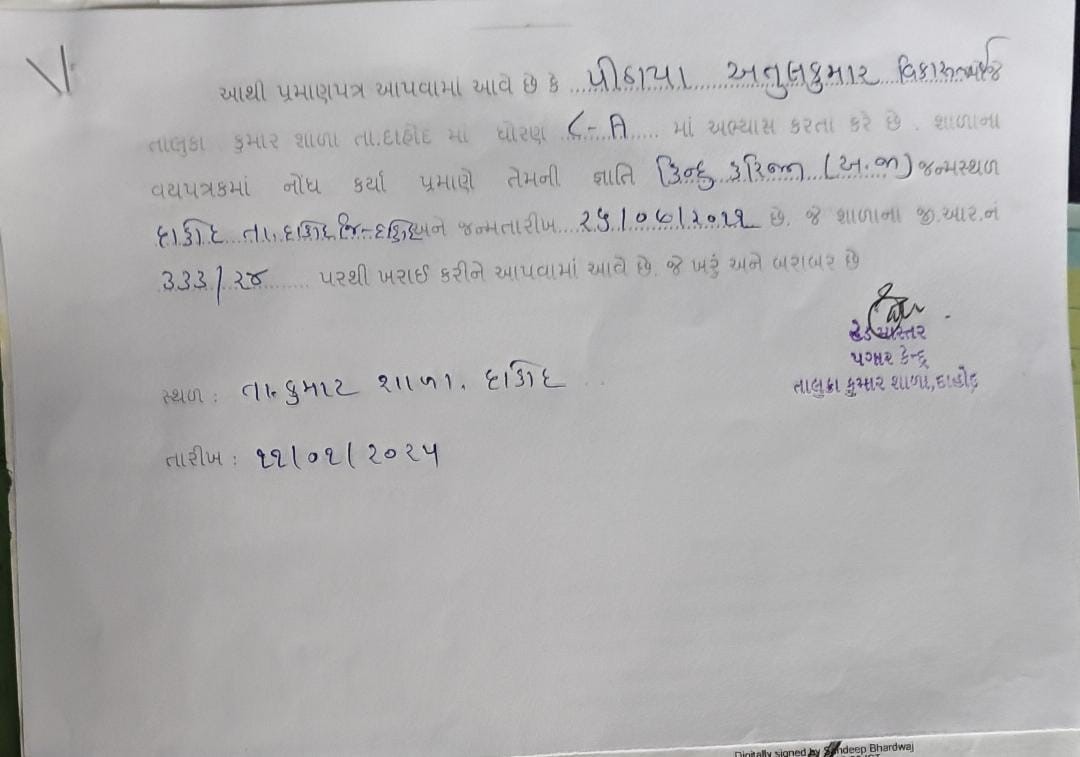 આથી પ્રમાણપત્ર આપવામાં આવે છે કે ...પીઠાયા અતુલકુમાર
તાલુકા કુમાર શાળા તા.દાહોદ માં ધોરણ ૮-A..... માં અભ્યાસ કરતા કરે છે . શાળાના
વયપત્રકમાં નોંધ કર્યા પ્રમાણે તેમની જ્ઞાતિ હિન્દુ હરિજન (અ.જા) જન્મસ્થળ
દાહોદ તા.દાહોદ જિ-દાહોદ અને જન્મતારીખ...૨૫/૦૭/૨૦૧૧ છે. જે શાળાના જી.આર.નં
૩૩૩/૨૪ ........ પરથી ખરાઈ કરીને આપવામાં આવે છે. જે ખરું અને બરાબર છે
હેડમાસ્તર
પગાર કેન્દ્ર
તાલુકા કુમાર શાળા,દાહોદ
સ્થળ : તા.કુમાર શાળા. દાહોદ
તારીખ : ૧૧/૦૧/૨૦૨૫
Digitally signed by Sandeep Bhardwaj